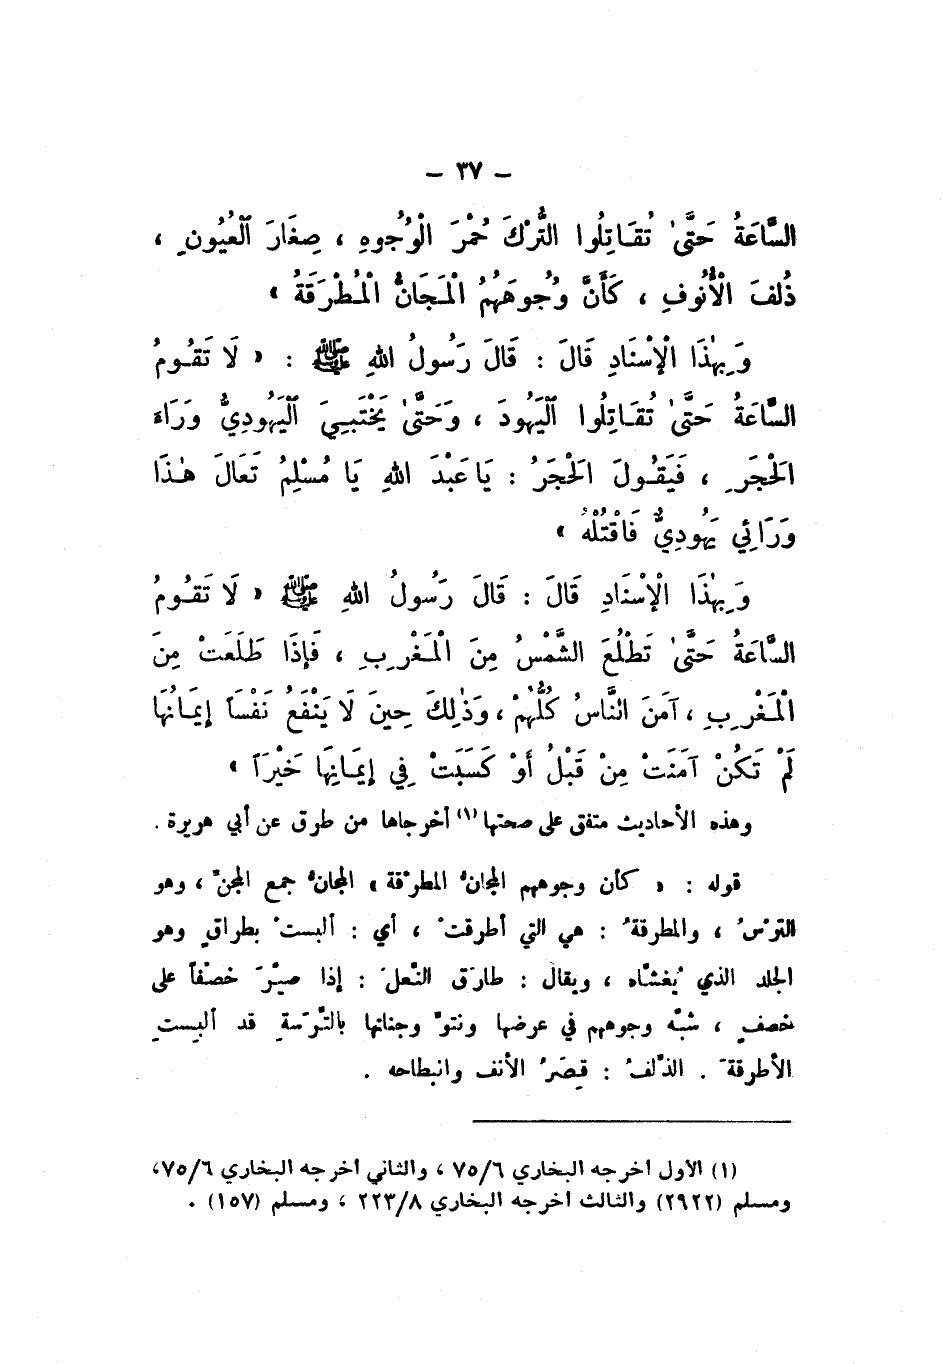 - ٣٧ -
السَّاعَةُ حَتَّىٰ تُقَاتِلُوا التُّرْكَ حُمْرَ الْوُجُوهِ ، صِغَارَ الْعُيُونِ ،
ذُلْفَ الْأُنُوفِ ، كَأَنَّ وُجُوهَهُمُ الْمَجَانُّ الْمُطْرَقَةُ »
وَبِهٰذَا الْإِسْنَادِ قَالَ : قَالَ رَسُولُ اللهِ ﷺ : « لَا تَقُومُ
السَّاعَةُ حَتَّىٰ تُقَاتِلُوا الْيَهُودَ ، وَحَتَّىٰ يَخْتَبِيَ الْيَهُودِيُّ وَرَاءَ
الْحَجَرِ ، فَيَقُولَ الْحَجَرُ : يَا عَبْدَ اللهِ يَا مُسْلِمُ تَعَالَ هٰذَا
وَرَائِي يَهُودِيٌّ فَاقْتُلْهُ »
وَبِهٰذَا الْإِسْنَادِ قَالَ : قَالَ رَسُولُ اللهِ ﷺ « لَا تَقُومُ
السَّاعَةُ حَتَّىٰ تَطْلُعَ الشَّمْسُ مِنَ الْمَغْرِبِ ، فَإِذَا طَلَعَتْ مِنَ
الْمَغْرِبِ ، آمَنَ النَّاسُ كُلُّهُمْ ، وَذٰلِكَ حِينَ لَا يَنْفَعُ نَفْسًا إِيمَانُهَا
لَمْ تَكُنْ آمَنَتْ مِنْ قَبْلُ أَوْ كَسَبَتْ فِي إِيمَانِهَا خَيْرًا »
وهذه الأحاديث متفق على صحتها (١) أخرجاها من طرق عن أبي هريرة .
قوله : « كأن وجوههم المجانُّ المطرْقة » المجانُّ جمع المجنّ ، وهو
الترْسُ ، والمطرقةُ : هي التي أطرقتْ ، أي : ألبستْ بطراقٍ وهو
الجلد الذي يُغشّاه ، ويقال : طارَق النّعلَ : إذا صيّرَ خصْفاً على
خصفٍ ، شبّه وجوههم في عرضها ونتوّ وجناتها بالتّرَسةِ قد ألبِستِ
الأطرقةَ . الذّلَفُ : قِصَرُ الأنف وانبطاحه .
(١) الأول أخرجه البخاري ٧٥/٦ ، والثاني أخرجه البخاري ٧٥/٦،
ومسلم (٢٩٢٢) والثالث أخرجه البخاري ٢٢٣/٨ ، ومسلم (١٥٧) .